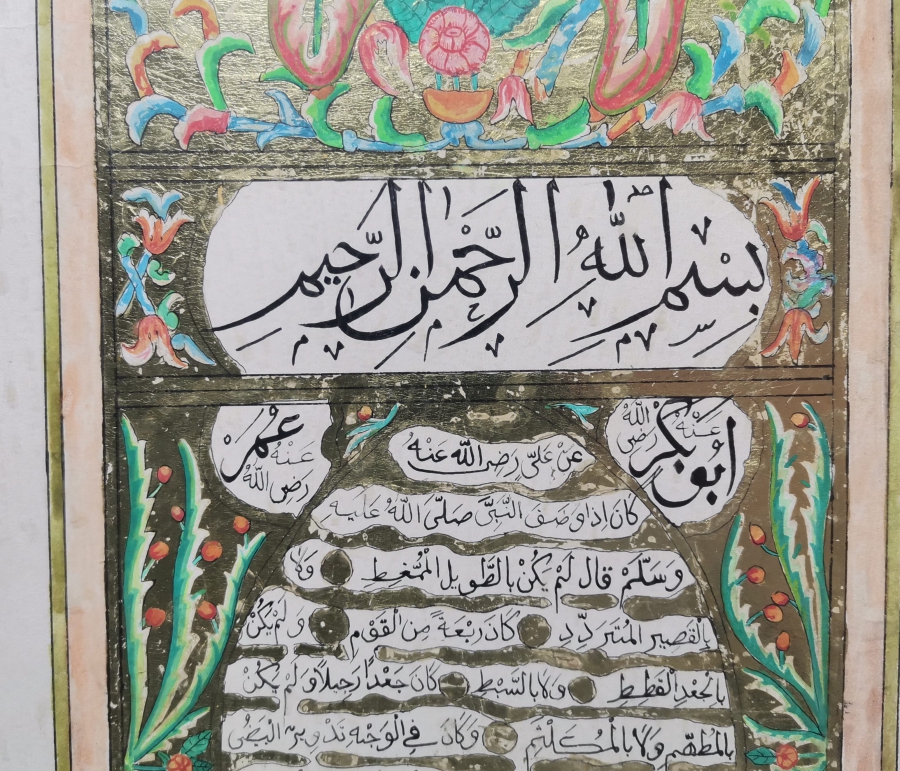 بِسْمِ اللهِ الرَّحْمٰنِ الرَّحِيمِ
ابُو بَكْر رَضِىَ اللهُ عَنْهُ
عُمَرْ رَضِىَ اللهُ عَنْهُ
عَنْ عَلِىّ رَضِىَ اللهُ عَنْهُ
كَانَ اِذَا وَصَفَ النَّبِىَّ صَلَّى اللهُ عَلَيه
وَسَلَّمْ قَالَ لَمْ يَكُنْ بِالطَّوِيلِ الْمُمَّغِطِ وَلَا
بِالْقَصِيرِ الْمُتَرَدِّدِ كَانَ رَبْعَةً مِنَ الْقَوْمِ وَلَمْ يَكُنْ
بِالْجَعْدِ الْقَطِطِ وَلَا بِالسَّبْطِ كَانَ جَعْداً رَجِلاً وَلَمْ يَكُنْ
بِالْمُطَهَّمِ وَلَا بِالْمُكَلْثَمِ وَكَانَ فِى الْوَجْهِ تَدْوِيرٌ اَبْيَضُ